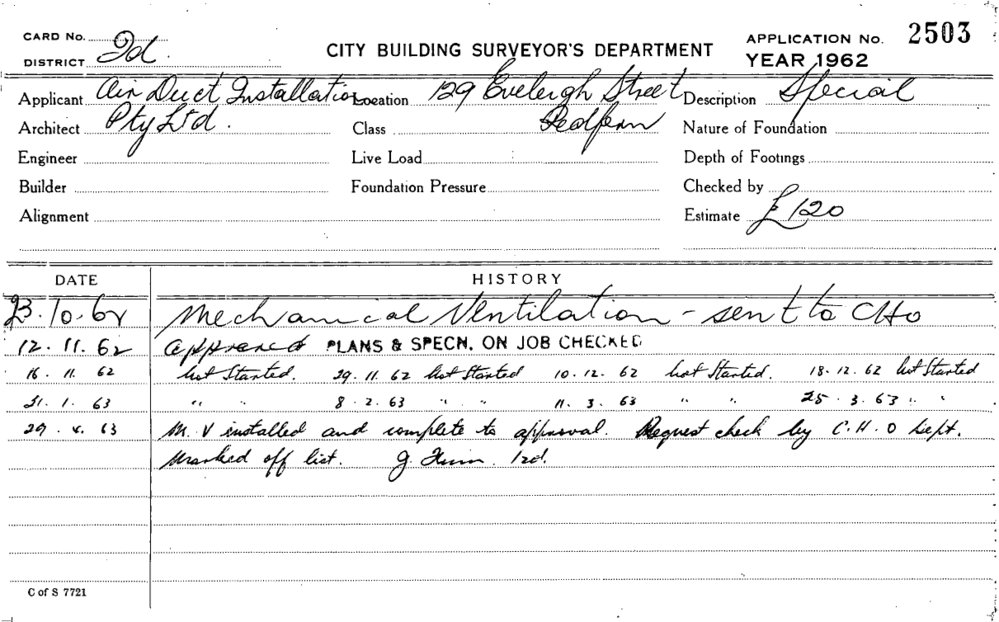 CARD No.
DISTRICT 2d.
CITY BUILDING SURVEYOR'S DEPARTMENT
APPLICATION No. 2503
YEAR 1962
Applicant Air Duct Installation Location 129 Eveleigh Street Description Special
Architect Pty Ltd. Class Redfern Nature of Foundation
Engineer Live Load Depth of Footings
Builder Foundation Pressure Checked by
Alignment Estimate £120
DATE HISTORY
23.10.62 Mechanical Ventilation - sent to CHO
12.11.62 approved PLANS & SPECN. ON JOB CHECKED
16.11.62 Not Started. 29.11.62 Not Started 10.12.62 Not Started. 18.12.62 Not Started
21.1.63 " " 8.2.63 " " 11.3.63 " " 25.3.63 " "
29.4.63 M.V installed and complete to approval. Request check by C.H.O Dept.
Marked off list. J.
C of S 7721